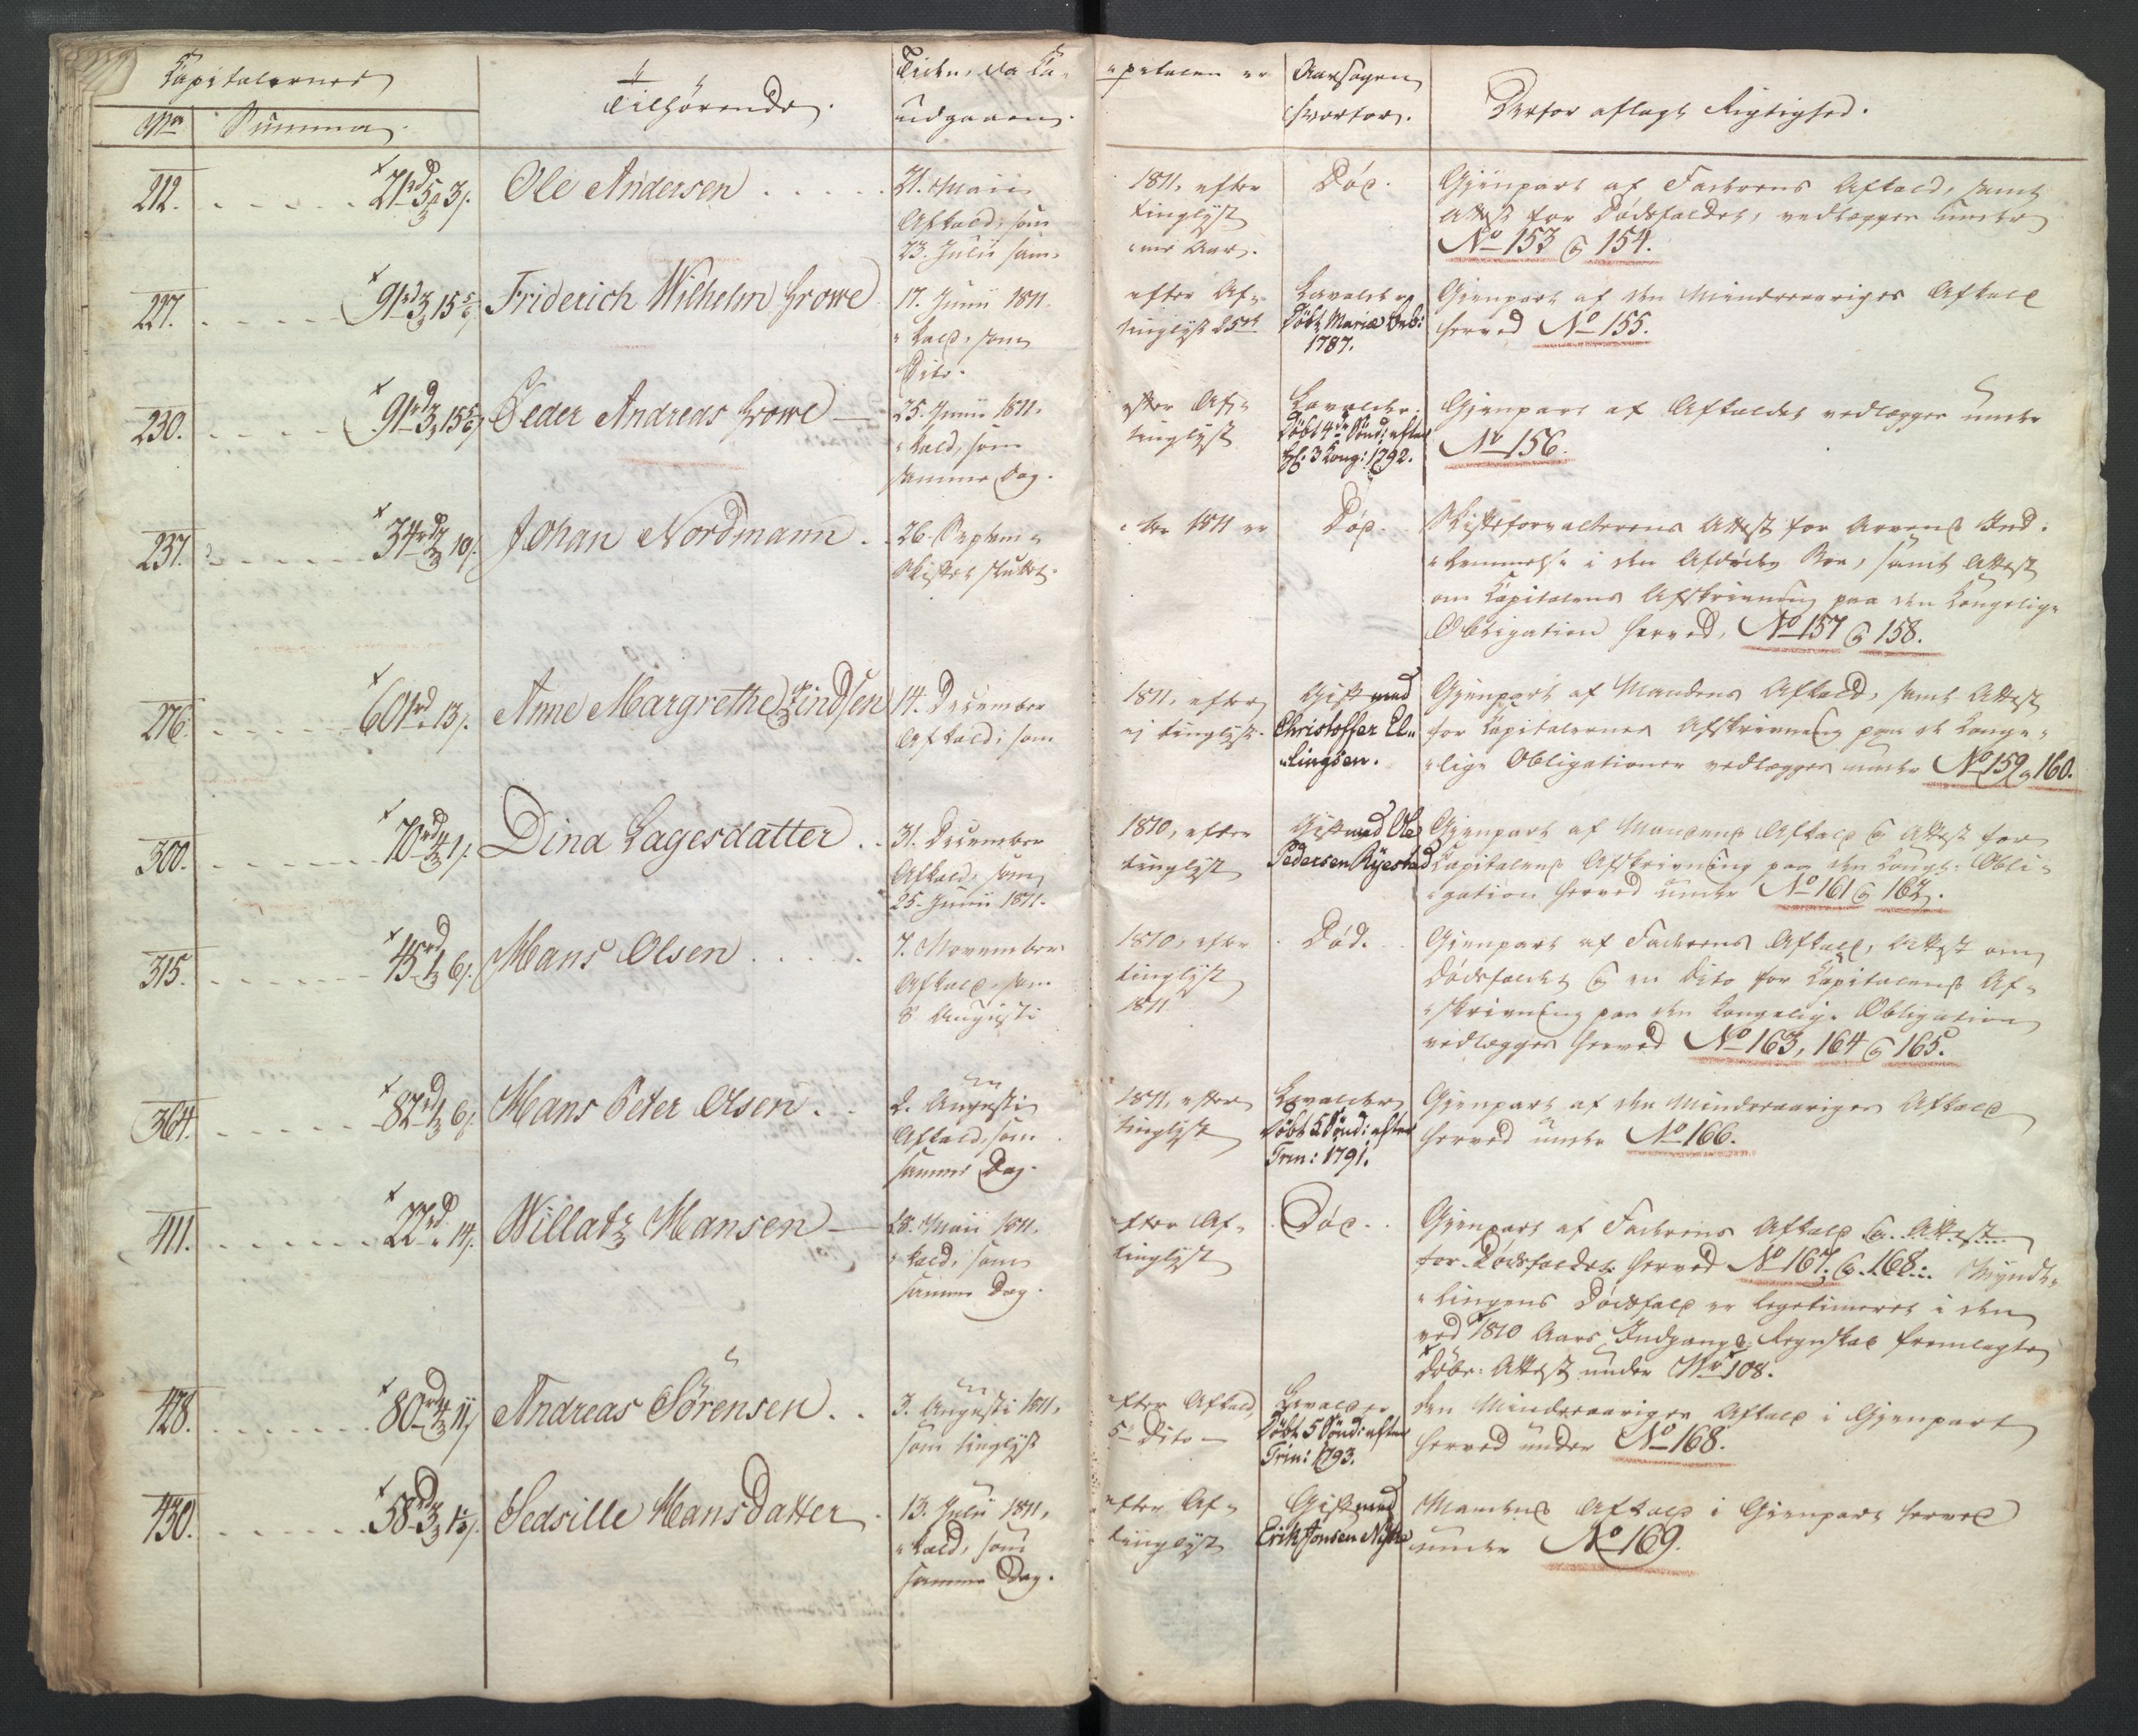 Capitalernes
No
Summa.
Tilhørende.
Tiden, da Ca-
udgaaen.
"pitalen er
Aarsagen
hvorfor.
Derfor aflagt Rigtighed.
212. 21rd 3.
Ole Andersen
21. Maii
Afkald, som
23. Julii sam-
1811, efter
tinglyst
"me Aar.
Død.
Gjenpart af Faderens Afkald, samt
Attest for Dødsfaldet, vedlægges under
No 153 & 154.
227. 91rd 3, 15
Friderich Wilhelm Growe
17. Junii 1811.
"kald, som
Dito.
efter Af-
tinglyst 25de
Lavalder
Døbt Mariæ Beb:
1787.
Gjenpart af den Mindreaariges Afkald
herved No 155.
230. 91rd 3, 15
Peder Andreas Growe
25. Junii 1811.
"kald, som
samme Dag.
efter Af-
tinglyst
Lavalder.
Døbt 4de Sønd: efter
hl: 3 Kong: 1792.
Gjenpart af Afkaldet vedlægges under
No 156.
237. 34rd 10.
Johan Nordmann
26. Septem-
Skiftet sluttet.
"ber 1811 er
Død.
Skifteforvalterens Attest for Arvens Ind-
"lemmelse i den Afdødes Boe, samt Attest
om Capitalens Afskrivning paa den Kongelige
Obligation herved, No 157 & 158.
276. 601rd 13.
Anne Margrethe Lindsen
14. December
Afkald, som
1811, efter
ej tinglyst.
Gift med
Christoffer El-
"lingsen.
Gjenpart af Mandens Afkald, samt Attest
for Capitalernes Afskrivning paa de Konge-
"lige Obligationer vedlægges under No 159 & 160.
300. 70rd 1.
Dina Lagesdatter
31. December
Afkald, som
25. Junii 1811.
1810, efter
tinglyst
Gift med Ole
Pedersen Ryestad
Gjenpart af Mandens Afkald & Attest for
Capitalens Afskrivning paa den Kongl: Obli-
"gation herved under No 161 & 162.
315. 45rd 1, 6.
Hans Olsen
7. November
Afkald, som
8. Augusti
1810, efter
tinglyst
1811.
Død.
Gjenpart af Faderens Afkald, Attest om
Dødsfaldet & en Dito for Capitalens Af-
"skrivning paa den Kongelige Obligation
vedlægges herved No 163, 164 & 165.
364. 82rd 1, 6.
Hans Peter Olsen.
2. Augusti
Afkald, som
samme Dag.
1811, efter
tinglyst
Lavalder
Døbt 5 Sønd: efter
Trin: 1791.
Gjenpart af den Mindreaariges Afkald
herved under No 166.
411. 22rd " 14.
Willatz Hansen
28. Maii 1811.
"kald, som
samme Dag.
efter Af-
tinglyst
Død.
Gjenpart af Faderens Afkald & Attest
for Dødsfaldet herved No 167. & 168. Mynd-
"lingens Dødsfald er legitimeret i den
ved 1810 Aars Indgangs Regnskab fremlagte
Døde-Attest under No 108.
428. 80rd 11
Andreas Sørensen.
3. Augusti 1811,
som tinglyst
efter Afkald,
5 Dito
Lavalder
Døbt 5 Sønd: efter
Trin: 1793.
Den Mindreaariges Afkald i Gjenpart
herved under No 168.
430. 58rd 3
Sedsille Hansdatter
13. Julii 1811,
"kald, som
samme Dag.
efter Af-
tinglyst
Gift med
Erik Jonsen
Mandens Afkald i Gjenpart herved
under No 169.